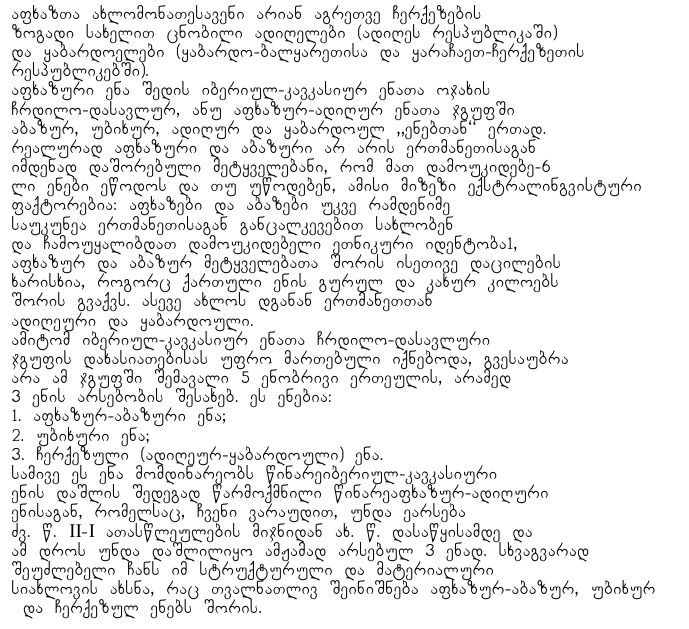 აფხაზთა ახლომონათესავენი არიან აგრეთვე ჩერქეზების
ზოგადი სახელით ცნობილი ადიღელები (ადიღეს რესპუბლიკაში)
და ყაბარდოელები (ყაბარდო-ბალყარეთისა და ყარაჩაეთ-ჩერქეზეთის
რესპუბლიკებში).
აფხაზური ენა შედის იბერიულ-კავკასიურ ენათა ოჯახის
ჩრდილო-დასავლურ, ანუ აფხაზურ-ადიღურ ენათა ჯგუფში
აბაზურ, უბიხურ, ადიღურ და ყაბარდოულ ,,ენებთან“ ერთად.
რეალურად აფხაზური და აბაზური არ არის ერთმანეთისაგან
იმდენად დაშორებული მეტყველებანი, რომ მათ დამოუკიდებე-6
ლი ენები ეწოდოს და თუ უწოდებენ, ამისი მიზეზი ექსტრალინგვისტური
ფაქტორებია: აფხაზები და აბაზები უკვე რამდენიმე
საუკუნეა ერთმანეთისაგან განცალკევებით სახლობენ
და ჩამოუყალიბდათ დამოუკიდებელი ეთნიკური იდენტობა1,
აფხაზურ და აბაზურ მეტყველებათა შორის ისეთივე დაცილების
ხარისხია, როგორც ქართული ენის გურულ და კახურ კილოებს
შორის გვაქვს. ასევე ახლოს დგანან ერთმანეთთან
ადიღეური და ყაბარდოული.
ამიტომ იბერიულ-კავკასიურ ენათა ჩრდილო-დასავლური
ჯგუფის დახასიათებისას უფრო მართებული იქნებოდა, გვესაუბრა
არა ამ ჯგუფში შემავალი 5 ენობრივი ერთეულის, არამედ
3 ენის არსებობის შესახებ. ეს ენებია:
1. აფხაზურ-აბაზური ენა;
2. უბიხური ენა;
3. ჩერქეზული (ადიღეურ-ყაბარდოული) ენა.
სამივე ეს ენა მომდინარეობს წინარეიბერიულ-კავკასიური
ენის დაშლის შედეგად წარმოქმნილი წინარეაფხაზურ-ადიღური
ენისაგან, რომელსაც, ჩვენი ვარაუდით, უნდა ეარსება
ძვ. წ. II-I ათასწლეულების მიჯნიდან ახ. წ. დასაწყისამდე და
ამ დროს უნდა დაშლილიყო ამჟამად არსებულ 3 ენად. სხვაგვარად
შეუძლებელი ჩანს იმ სტრუქტურული და მატერიალური
სიახლოვის ახსნა, რაც თვალნათლივ შეინიშნება აფხაზურ-აბაზურ, უბიხურ
და ჩერქეზულ ენებს შორის.